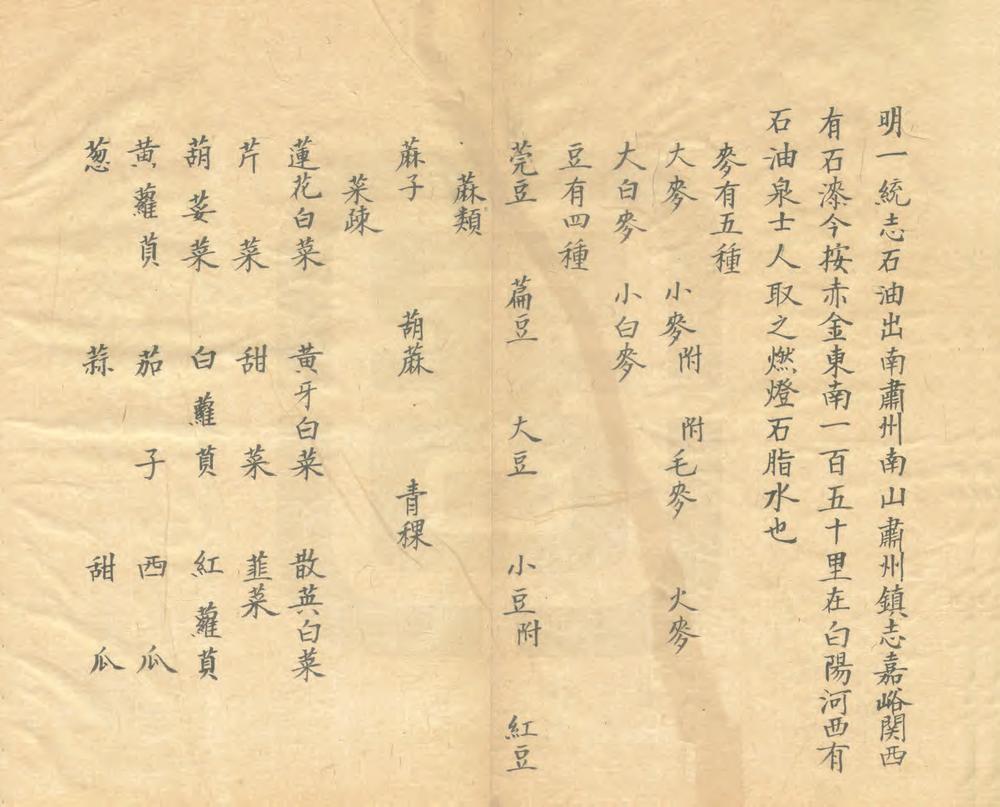 明一統志石油出南肅州南山肅州鎮志嘉峪関西
有石漆今按赤金東南一百五十里在白陽河西有
石油泉士人取之燃燈石脂水也
麥有五種
大麥 小麥附 附毛麥 火麥
大白麥 小白麥
豆有四種
莞豆 萹豆 大豆 小豆附 紅豆
蔴類
蔴子 葫蔴 青稞
菜疎
蓮花白菜 黄牙白菜 散英白菜
芹菜 甜菜 韮菜
葫荽菜 白蘿蔔 紅蘿蔔
黄蘿蔔 茄子 西瓜
葱 蒜 甜瓜